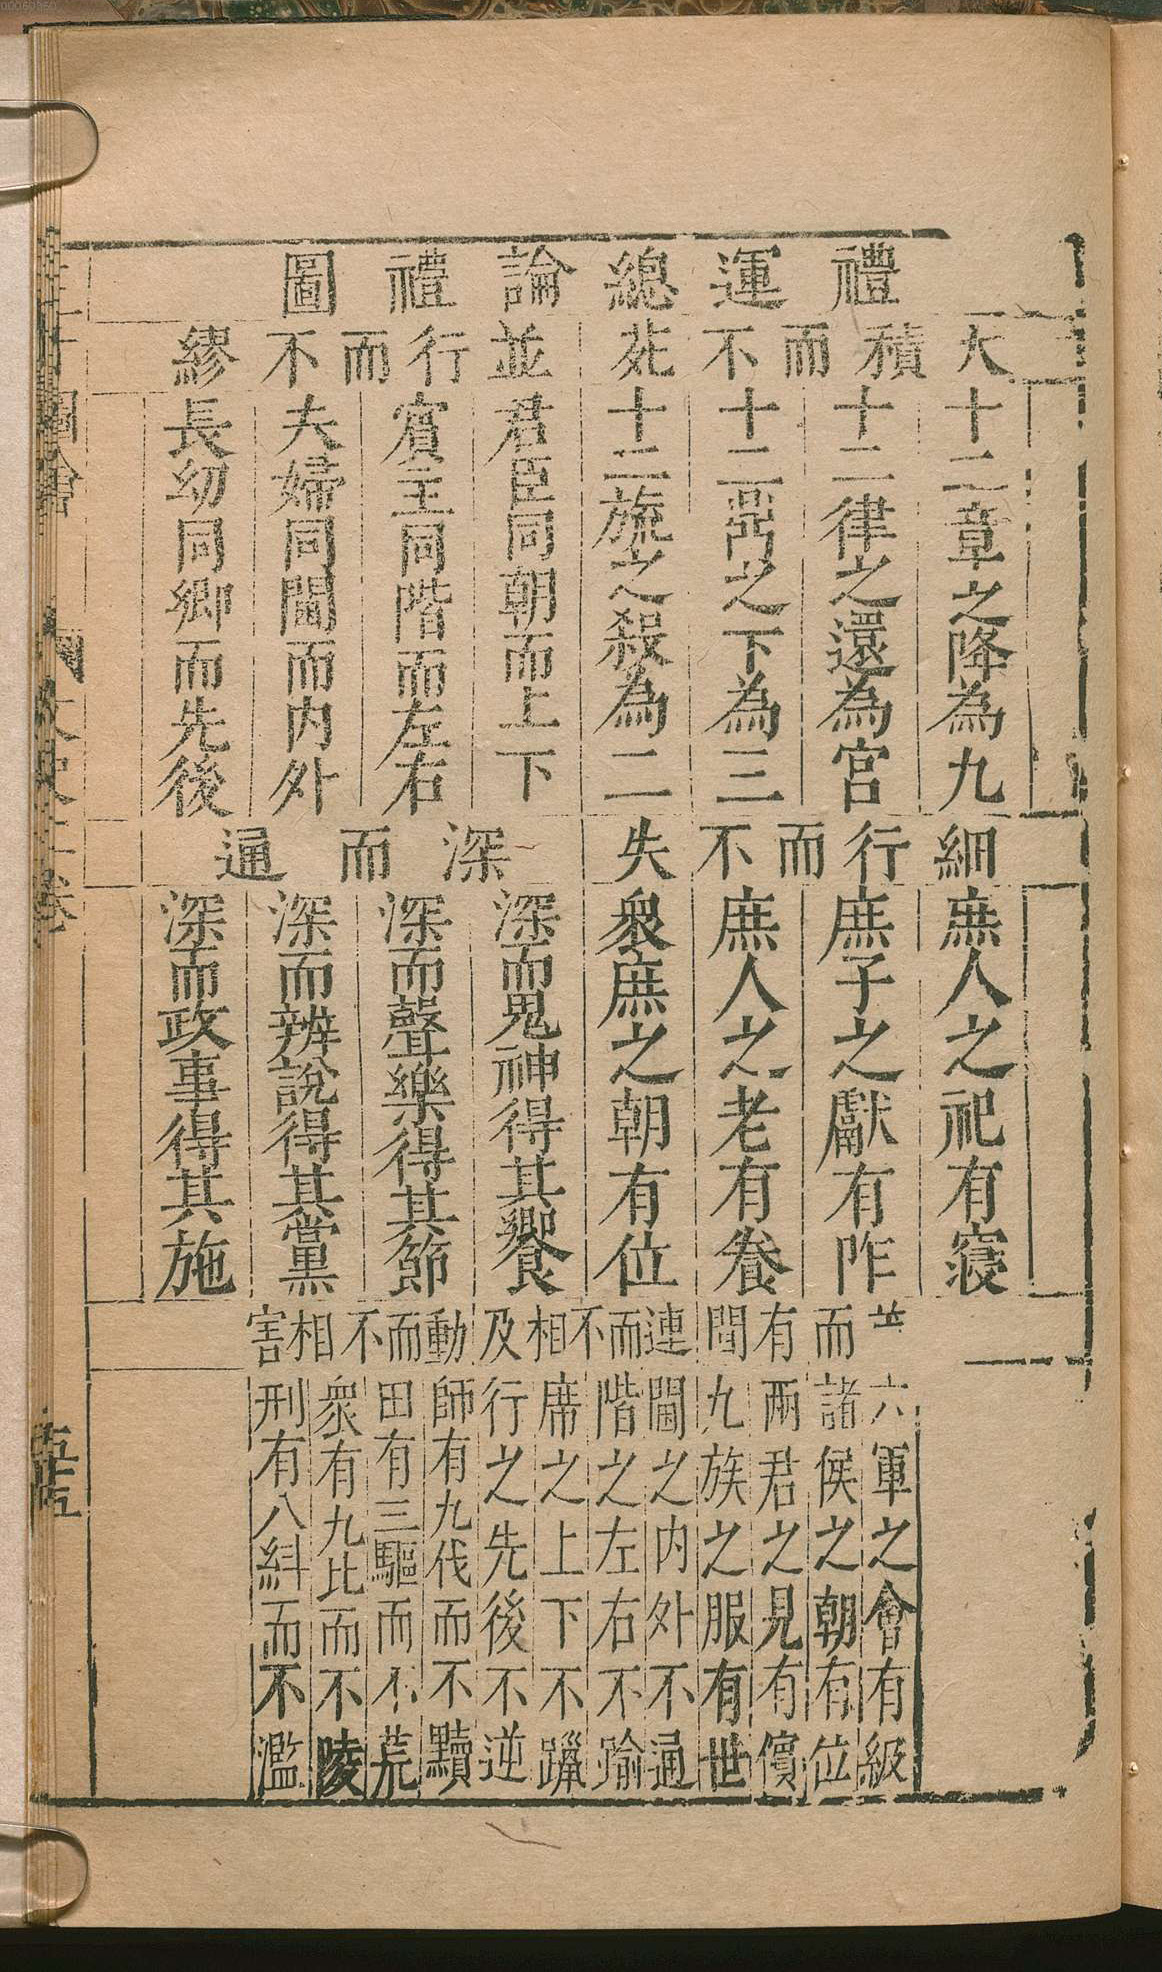 禮運總論禮圖
大積而不苑
十二章之降為九
十二律之還為宮
十二
之下為三
十二旒之殺為二
並行而不繆
君臣同朝而上下
賓主同階而左右
夫婦同閫而内外
長幼同鄉而先後
細行而不失
庶人之祀有寢
庶子之獻有阼
庶人之老有養
衆庶之朝有位
深而通
深而鬼神得其饗
深而聲樂得其節
深而辨說得其黨
深而政事得其施
而有間
六軍之會有級
諸侯之朝有位
兩君之見有儐
九族之服有世
連而不相及
閫之内外不通
階之左右不踰
席之上下不躐
行之先後不逆
動而不相害
師有九伐而不黷
田有三驅而不荒
衆有九比而不陵
刑有八糾而不濫
三才圖會
文史二卷
五十五